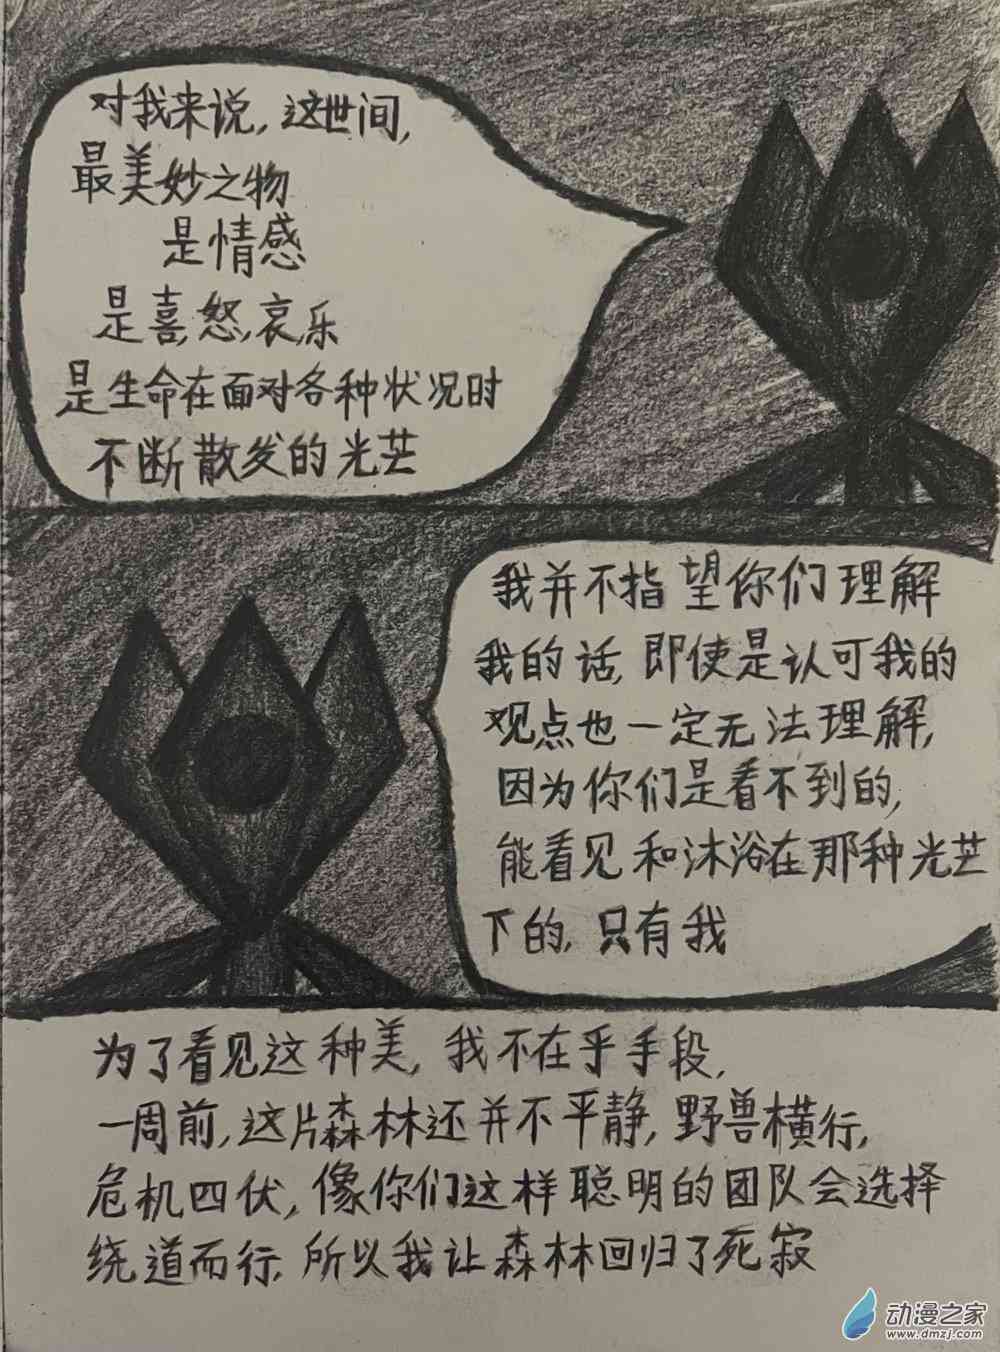 对我来说,这世间,
最美妙之物
是情感
是喜,怒,哀,乐
是生命在面对各种状况时
不断散发的光芒
我并不指望你们理解
我的话,即使是认可我的
观点也一定无法理解,
因为你们是看不到的,
能看见和沐浴在那种光芒
下的,只有我
为了看见这种美,我不在乎手段,
一周前,这片森林还并不平静,野兽横行,
危机四伏,像你们这样聪明的团队会选择
绕道而行,所以我让森林回归了死寂
动漫之家
www.dmzj.com